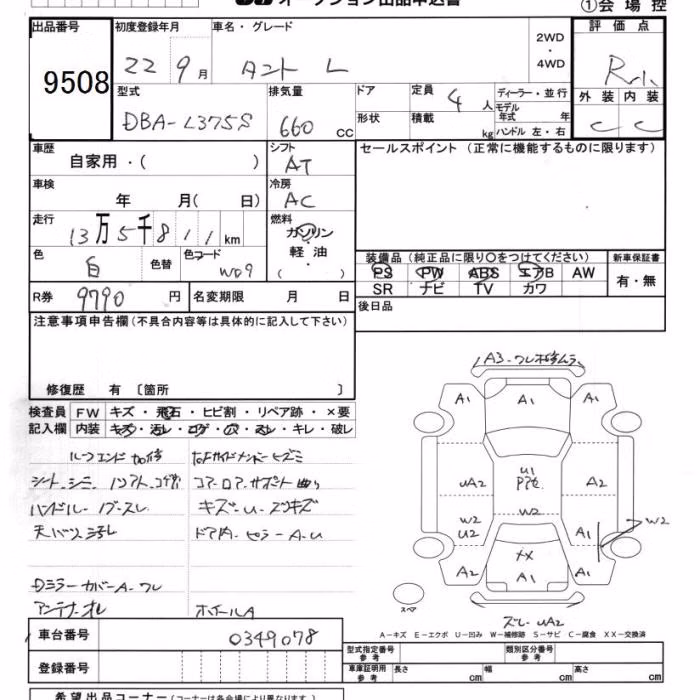 オークション出品申込書
①会場控
出品番号 初度登録年月 車名・グレード 2WD・4WD 評価点
9508 22 9月 タント L R
型式 排気量 ドア 定員 4人 ディーラー・並行 外装 内装
DBA-L375S 660 CC 形状 積載 kg モデル年式 年 C C
ハンドル 左・右
車歴 シフト セールスポイント (正常に機能するものに限ります)
自家用・( ) AT
車検 冷房
年 月( 日) AC
走行 燃料
13万5千811km ガソリン・軽油 ( )
色 色替 色コード 装備品 (純正品に限り○をつけてください) 新車保証書
白 W09 PS PW ABS エアB AW 有・無
SR ナビ TV カワ
R券 9790円 名変期限 月 日 後日品
注意事項申告欄(不具合内容等は具体的に記入して下さい)
修復歴 有 〔箇所 〕
A3
A1 A1 A1
検査員 FW キズ・飛石・ヒビ割・リペア跡・×要
記入欄 内装 キズ・汚レ・コゲ・穴・スレ・キレ・破レ
UA2 U1 A2
W2 W2 W2
U2 A1
A2 XX A1
A1
ハンドル
キズ・U
ドア内・ピラーA・U
Dミラーカバー A・ワレ
アンテナ オレ ホイールA
スペア
UA2
A-キズ E-エクボ U-凹み W-補修跡 S-サビ C-腐食 XX-交換済
車台番号 0349078 型式指定番号 参考 類別区分番号 参考
登録番号 車庫証明用 参考 長さ cm 幅 cm 高さ cm
希望出品コーナー(コーナーは各会場により異なります)